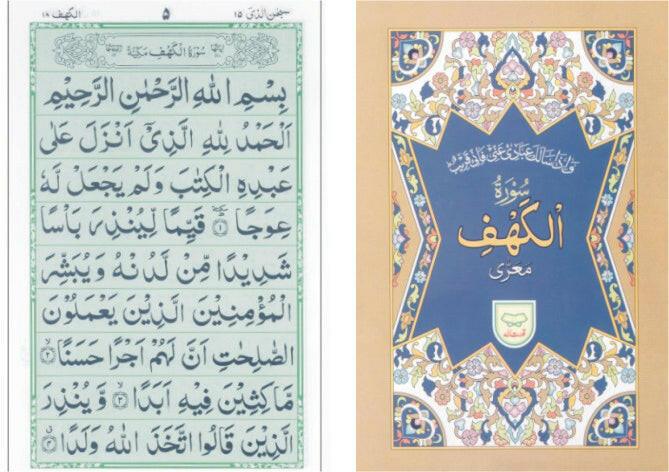 سبحٰن الذی ١٥
۵
الکهف ١٨
سُوْرَةُ الْكَهْفِ مَكِّيَّةٌ
بِسْمِ اللهِ الرَّحْمٰنِ الرَّحِيْمِ
اَلْحَمْدُ لِلّٰهِ الَّذِيْۤ اَنْزَلَ عَلٰى
عَبْدِهِ الْكِتٰبَ وَلَمْ يَجْعَلْ لَّهٗ
عِوَجًا ۜ ١ قَيِّمًا لِّيُنْذِرَ بَاْسًا
شَدِيْدًا مِّنْ لَّدُنْهُ وَيُبَشِّرَ
الْمُؤْمِنِيْنَ الَّذِيْنَ يَعْمَلُوْنَ
الصّٰلِحٰتِ اَنَّ لَهُمْ اَجْرًا حَسَنًا ۙ ٢
مَّاكِثِيْنَ فِيْهِ اَبَدًا ۙ ٣ وَّيُنْذِرَ
الَّذِيْنَ قَالُوا اتَّخَذَ اللهُ وَلَدًا ۗ ٤
وَاِذَا سَاَلَكَ عِبَادِیْ عَنِّیْ فَاِنِّیْ قَرِیْبٌ
سُوْرَةُ
اَلْكَهْفِ
مَعَرّٰی
قدرت اللہ